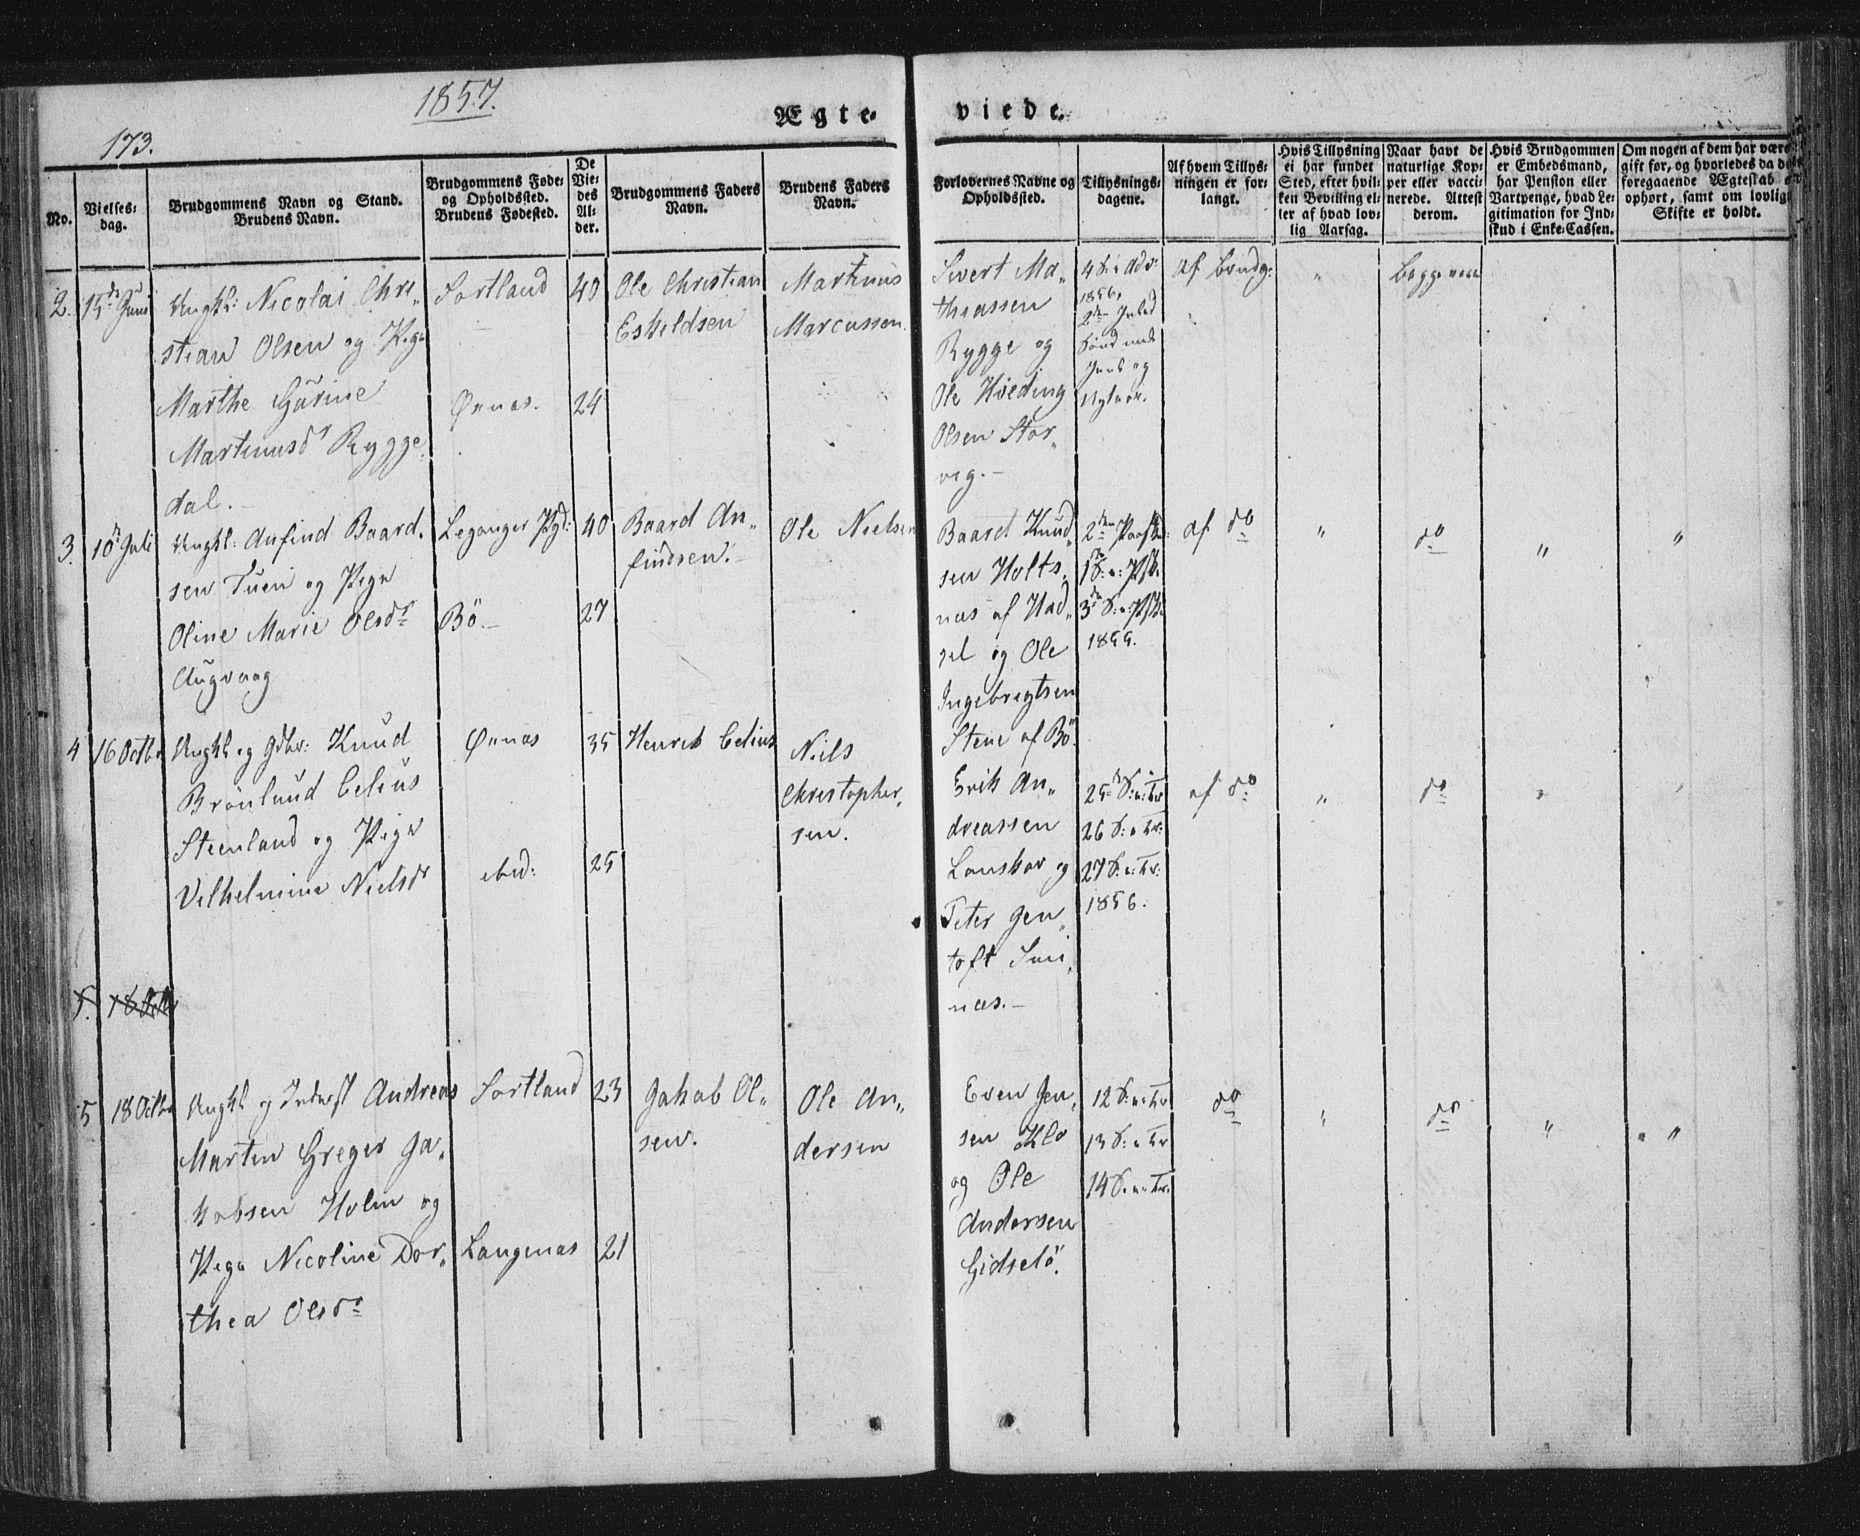 1857.
173.
Ægte-
viede.
No.
Vielses-
dag.
Brudgommens Navn og Stand.
Brudens Navn.
Brudgommens Føde-
og Opholdssted.
Brudens Fødested.
De
Vie-
des
Al-
der.
Brudgommens Faders
Navn.
Brudens Faders
Navn.
Forlovernes Navne og
Opholdssted.
Tillysnings-
dagene.
Af hvem Tillys-
ningen er for-
langt.
Hvis Tillysning
ei har fundet
Sted, efter hvil-
ken Bevilling el-
ler af hvad lov-
lig Aarsag.
Naar havt de
naturlige Kop-
per eller vacci-
nerede. Attest
derom.
Hvis Brudgommen
er Embedsmand,
har Pension eller
Vartpenge, hvad Le-
gitimation for Ind-
skud i Enke-Cassen.
Om nogen af dem har være
gift før, og hvorledes da de
foregaaende Ægteskab er
ophørt, samt om lovlig
Skifte er holdt.
2.
Juni
Ungk: Nicolai Chri-
stian Olsen og Pige
Marthe Gurine
Martinusdr Rygge
dal.
Sortland
Ønnes.
40
24
Ole Christian
Eskildsen
Martinus
Marcussen.
Sivert Ma-
thiassen
Rygge og
Ole Hveding
Olsen Stor-
vig.
4 S. i Adv:
1856,
2den Juled
Sønd mel
Juul og
Nytaar.
af Brudg:
"
Begge vac
3.
10de Juli
Ungk: Anfind Baard-
sen Tuen og Pige
Oline Marie Olsdr
Augvaag
Leganger Pgd:
Bö.
40
27
Baard An-
findsen.
Ole Nielsen
Baard Knud-
sen Holts-
næs af Had-
sel og Ole
Ingebregtsen
Stene af Bö.
2den Paaske
1 S. e: Psk.
3de S. e: Psk.
1855.
af do
"
do
"
"
4
16 Octbr
Ungk og Gdbr: Knud
Brönlund Celius
Steenland og Pige
Vilhelmine Nielsdr
Ønnes
ibid:
35
25
Henrik Celius
Niels
Christopher-
sen.
Erik An-
dreassen
Lanskar og
Peter Jen-
toft Smi-
næs.
25de S: e: Tr
26 S: e Tr:
27 S. e: Tr:
1856.
af do
"
do
"
"
5.
18 Octbr
5
18 Octbr
Ungk og Inderst Andreas
Martin Greger Ja-
kobsen Holm og
Pige Nicoline Dor-
thea Olsdr
Sortland
Langenæs
23
21
Jakob Ol-
sen.
Ole An-
dersen
Even Jen-
sen Klo
og Ole
Andersen
Gidsetö.
12 S. e: Tr
13 S: e Tr
14 S. e: Tr.
do
"
do
"
"